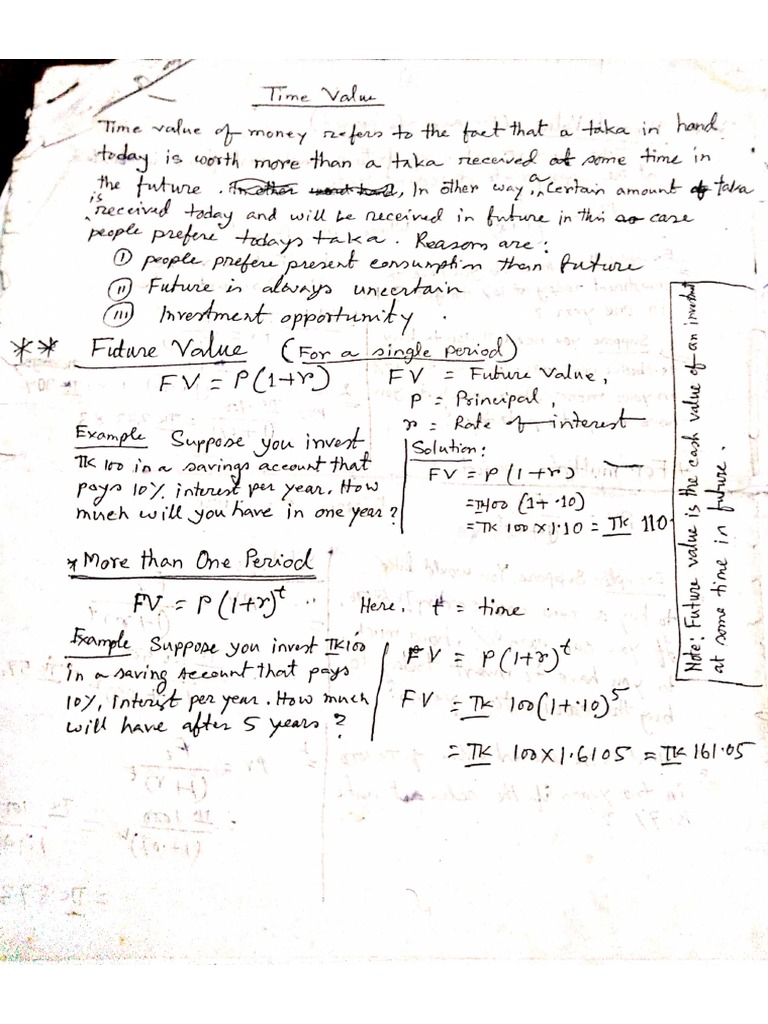 Time Value
Time value of money refers to the fact that a taka in hand
today is worth more than a taka received at some time in
the future. In other way, in a certain amount of taka
is received today and will be received in future in this case
people prefere todays taka. Reasons are:
(i) people prefere present consumption than future
(ii) Future is always uncertain
(iii) Investment opportunity.
** Future Value (For a single period)
FV = P(1+r) FV = Future Value,
P = Principal,
r = Rate of interest
Example Suppose you invest
TK 100 in a savings account that
pays 10% interest per year. How
much will you have in one year?
Solution:
FV = P (1+r)
= TK 100 (1+.10)
= TK 100 x 1.10 = TK 110.
* More than One Period
FV = P(1+r)^t Here, t = time.
Example Suppose you invest TK100
in a saving Account that pays
10%, interest per year. How much
will have after 5 years?
FV = P(1+r)^t
FV = TK 100(1+.10)^5
= TK 100x1.6105 = TK 161.05
Note: Future value is the cash value of an investment
at some time in future.